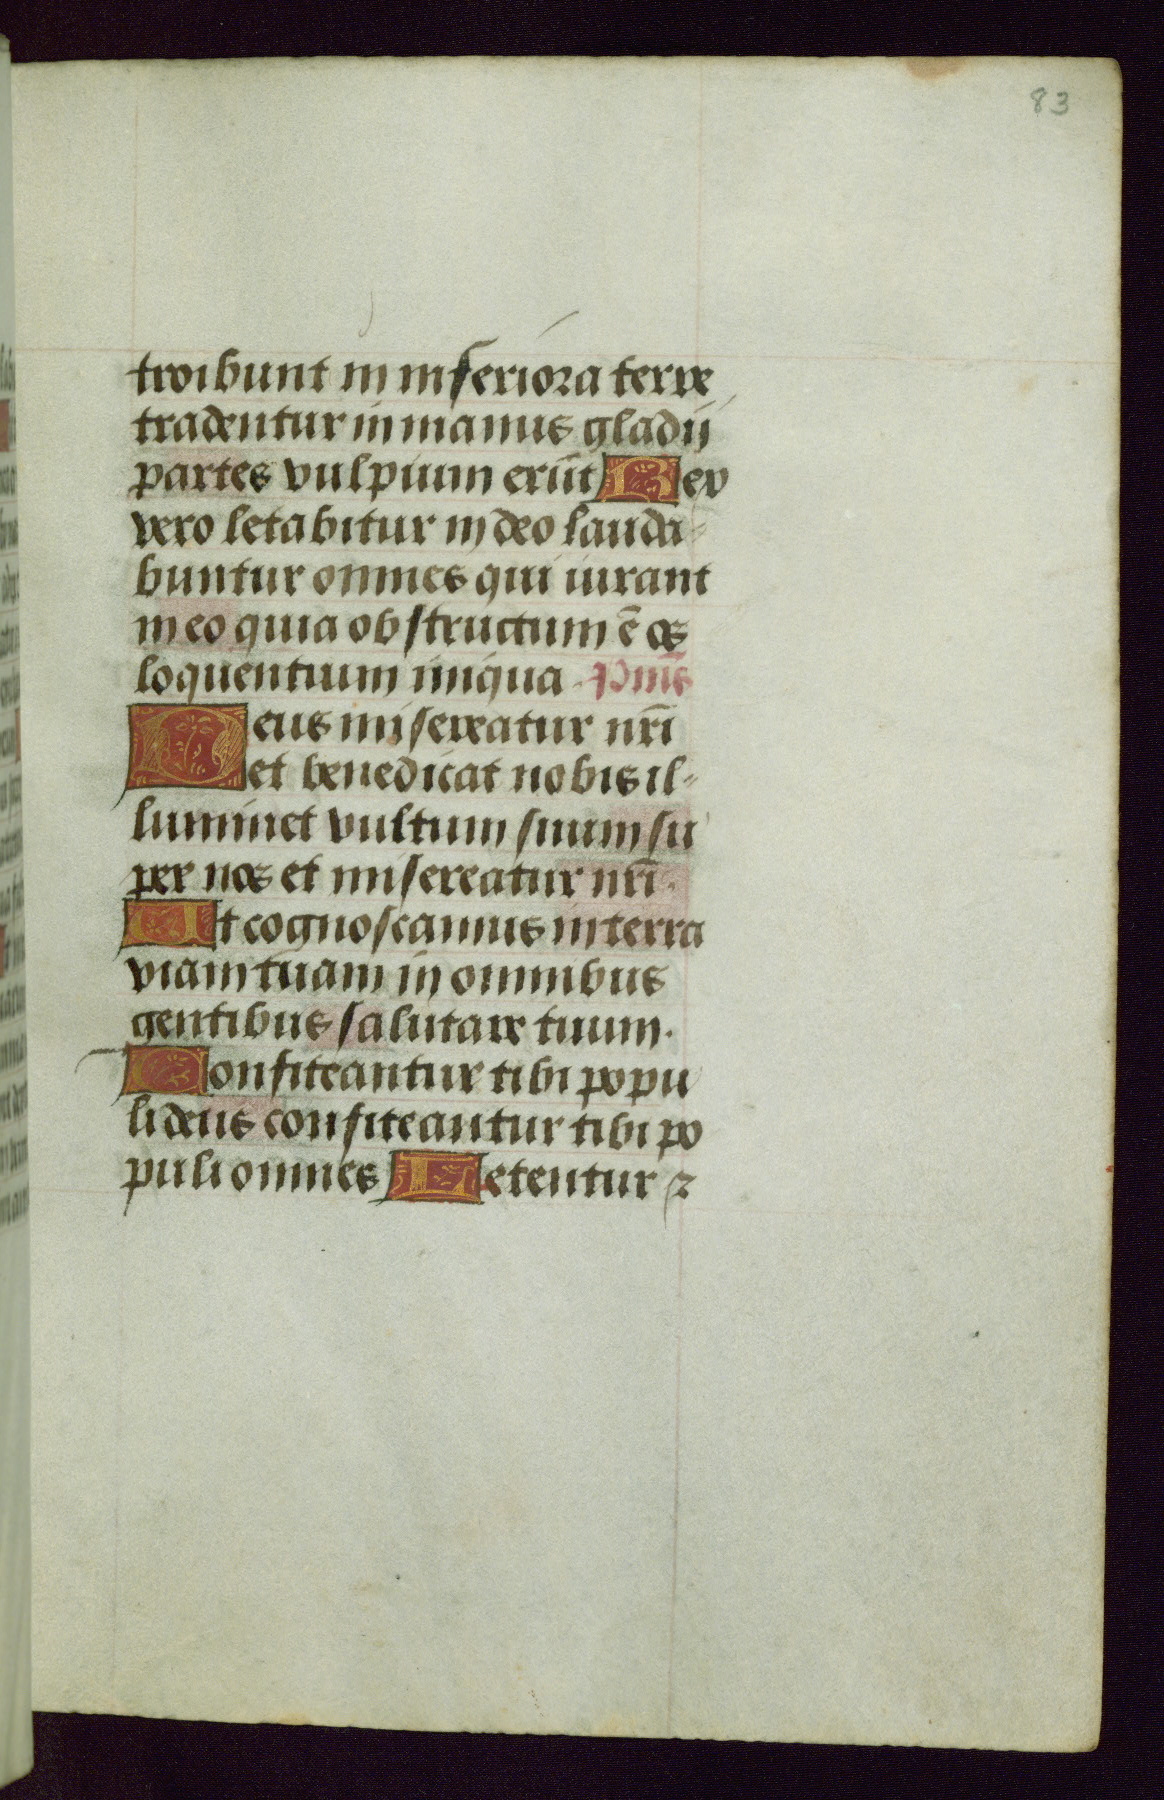 83
troibunt in inferiora terre
tradentur in manus gladij
partes vulpium erūt Rex
vero letabitur in deo lauda-
buntur omnes qui iurant
in eo quia obstructum ē os
loquentium iniqua. p̄mis
Deus misereatur nr̄i
et benedicat nobis il-
luminet vultum suum su
per nos et misereatur nr̄i.
Ut cognoscamus in terra
viam tuam in omnibus
gentibus salutare tuum.
Confiteantur tibi popu
li deus confiteantur tibi po
puli omnes Letentur ⁊